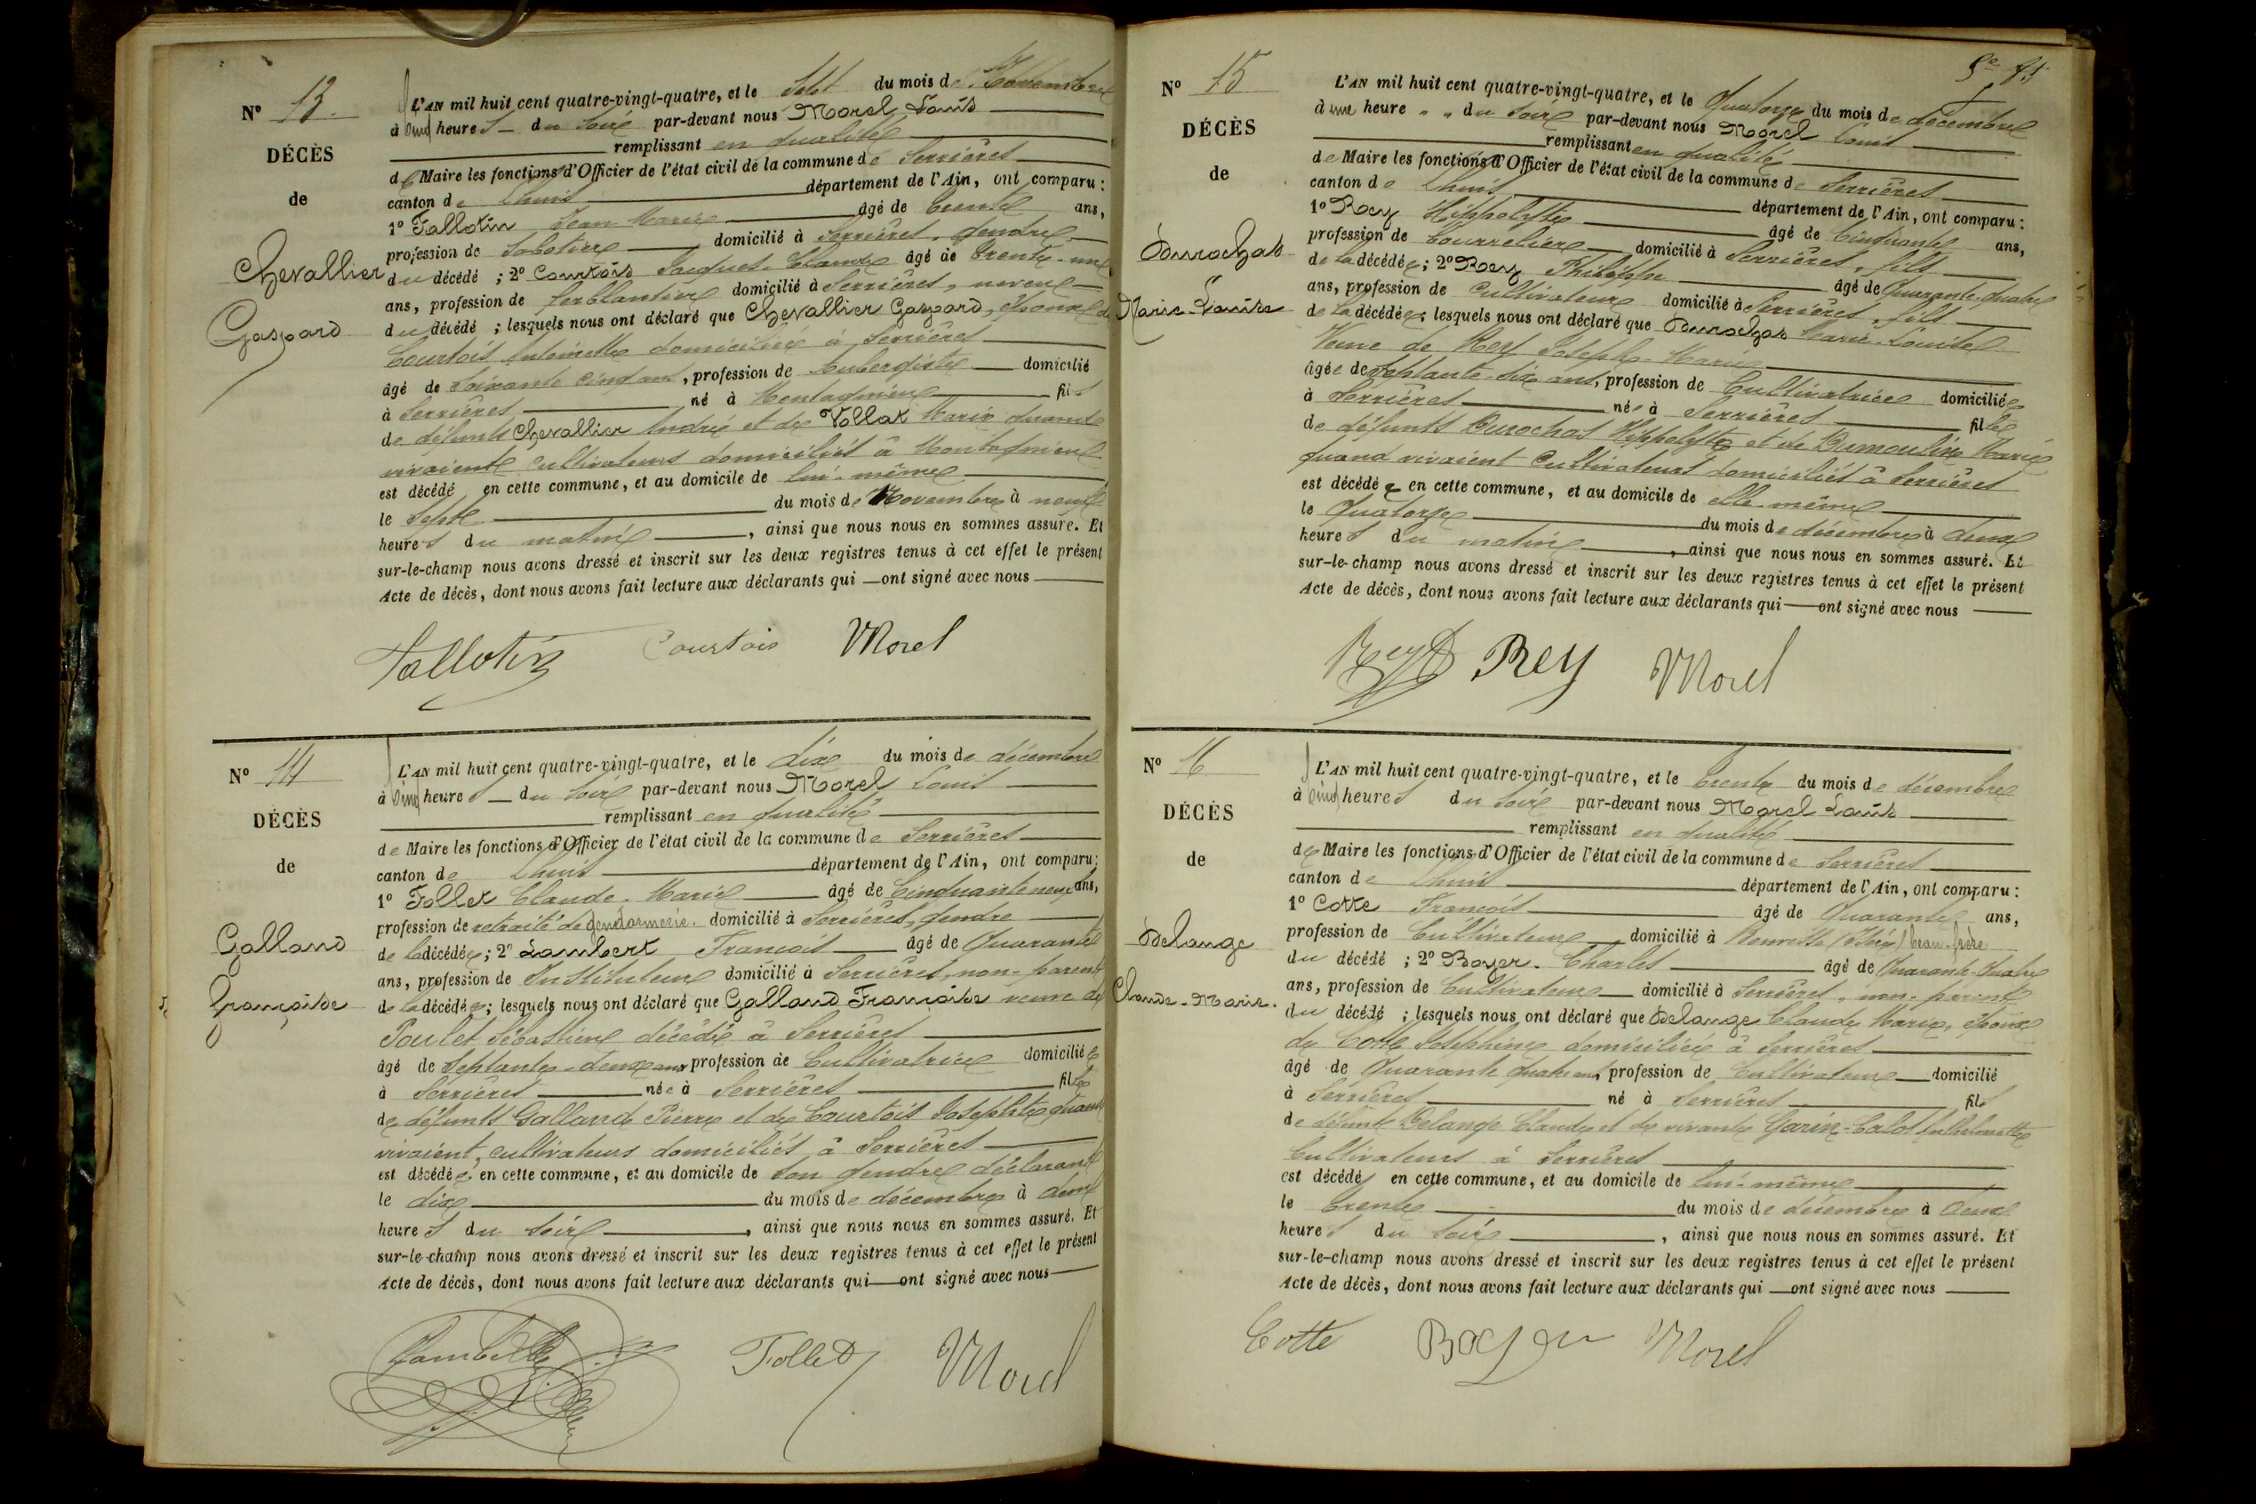 Nº 13
DÉCÈS
de
Chevallier
Gaspard
L'AN mil huit cent quatre-vingt-quatre, et le Sept du mois de Novembre
à cinq heures du soir par-devant nous Morel Louis
remplissant en qualité
de Maire les fonctions d'Officier de l'état civil de la commune de Serrières
canton de Lhuis département de l'Ain, ont comparu :
1º Fallotin Jean Marie âgé de trente ans,
profession de Sabotier domicilié à Serrières, gendre
du décédé ; 2º Courtois Jacques-Claude âgé de trente-un
ans, profession de ferblantier domicilié à Serrières, neveu
du décédé ; lesquels nous ont déclaré que Chevallier Gaspard, époux de
Courtois Antoinette domiciliée à Serrières
âgé de Soixante cinq ans, profession de Aubergiste domicilié
à Serrières né à Montagnieu fils
de défunts Chevallier André et de Vollat Marie quand
vivaient cultivateurs domiciliés à Montagnieu
est décédé en cette commune, et au domicile de lui-même
le Sept du mois de Novembre à neuf
heures du matin, ainsi que nous nous en sommes assuré. Et
sur-le-champ nous avons dressé et inscrit sur les deux registres tenus à cet effet le présent
Acte de décès, dont nous avons fait lecture aux déclarants qui ont signé avec nous
Fallotin Courtois Morel
Nº 14
DÉCÈS
de
Galland
Françoise
L'AN mil huit cent quatre-vingt-quatre, et le dix du mois de décembre
à cinq heures du soir par-devant nous Morel Louis
remplissant en qualité
de Maire les fonctions d'Officier de l'état civil de la commune de Serrières
canton de Lhuis département de l'Ain, ont comparu :
1º Follet Claude-Marie âgé de Cinquante neuf ans,
profession de retraité de gendarmerie domicilié à Serrières, gendre
de la décédée ; 2º Lambert François âgé de Quarante
ans, profession de Instituteur domicilié à Serrières, non-parent
de la décédée ; lesquels nous ont déclaré que Galland Françoise veuve de
Poulet Sébastien décédé à Serrières
âgé de Septante-deux ans profession de Cultivatrice domiciliée
à Serrières née à Serrières fille
de défunts Galland Pierre et de Courtois Josephte quand
vivaient, cultivateurs domiciliés à Serrières
est décédée en cette commune, et au domicile de son gendre déclarant
le dix du mois de décembre à deux
heures du soir, ainsi que nous nous en sommes assuré. Et
sur-le-champ nous avons dressé et inscrit sur les deux registres tenus à cet effet le présent
Acte de décès, dont nous avons fait lecture aux déclarants qui ont signé avec nous
Lambert Follet Morel
Nº 15
DÉCÈS
de
Durochat
Marie-Louise
L'AN mil huit cent quatre-vingt-quatre, et le Quatorze du mois de décembre
à une heure du soir par-devant nous Morel Louis
remplissant en qualité
de Maire les fonctions d'Officier de l'état civil de la commune de Serrières
canton de Lhuis département de l'Ain, ont comparu :
1º Rey Hippolyte âgé de Cinquante ans,
profession de Bourrelier domicilié à Serrières, fils
de la décédée ; 2º Rey Philippe âgé de Quarante-quatre
ans, profession de Cultivateur domicilié à Serrières, fils
de la décédée ; lesquels nous ont déclaré que Durochat Marie-Louise
Veuve de Rey Joseph-Marie
âgée de septante-six ans, profession de Cultivatrice domiciliée
à Serrières née à Serrières fille
de défunts Durochat Hippolyte et de Dumoulin Marie
quand vivaient Cultivateurs domiciliés à Serrières
est décédée en cette commune, et au domicile de elle-même
le Quatorze du mois de décembre à deux
heures du matin, ainsi que nous nous en sommes assuré. Et
sur-le-champ nous avons dressé et inscrit sur les deux registres tenus à cet effet le présent
Acte de décès, dont nous avons fait lecture aux déclarants qui ont signé avec nous
Rey Rey Morel
Nº 16
DÉCÈS
de
Delange
Claude-Marie
L'AN mil huit cent quatre-vingt-quatre, et le trente du mois de décembre
à cinq heures du soir par-devant nous Morel Louis
remplissant en qualité
de Maire les fonctions d'Officier de l'état civil de la commune de Serrières
canton de Lhuis département de l'Ain, ont comparu :
1º Cotte François âgé de Quarante ans,
profession de Cultivateur domicilié à (Isère) beau-frère
du décédé ; 2º Boyer Charles âgé de Quarante-Quatre
ans, profession de Cultivateur domicilié à Serrières, non-parent
du décédé ; lesquels nous ont déclaré que Delange Claude Marie, époux
de Cotte Josephine domiciliée à Serrières
âgé de Quarante quatre ans, profession de Cultivateur domicilié
à Serrières né à Serrières fils
de défunt Delange Claude et de vivante Garin-
Cultivateurs à Serrières
est décédé en cette commune, et au domicile de lui-même
le trente du mois de décembre à deux
heures du soir, ainsi que nous nous en sommes assuré. Et
sur-le-champ nous avons dressé et inscrit sur les deux registres tenus à cet effet le présent
Acte de décès, dont nous avons fait lecture aux déclarants qui ont signé avec nous
Cotte Boyer Morel